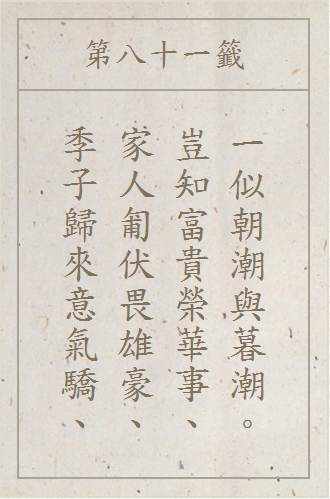 第八十一籤
季子歸來意氣驕、
家人匍伏畏雄豪、
豈知富貴榮華事、
一似朝潮與暮潮。